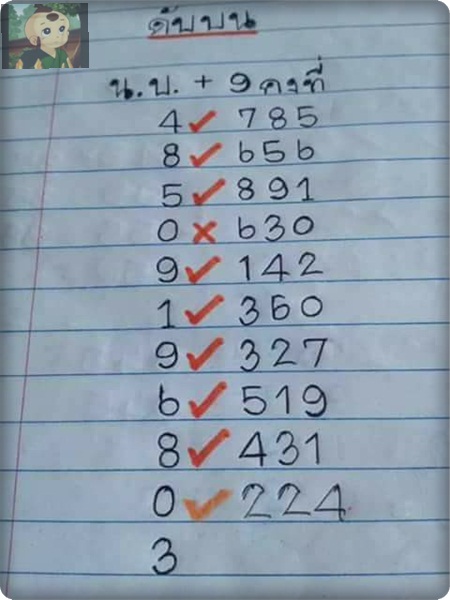 ดับบน
น.บ. + 9 คงที่
4 ✓ 785
8 ✓ 656
5 ✓ 891
0 × 630
9 ✓ 142
1 ✓ 360
9 ✓ 327
6 ✓ 519
8 ✓ 431
0 ✓ 224
3